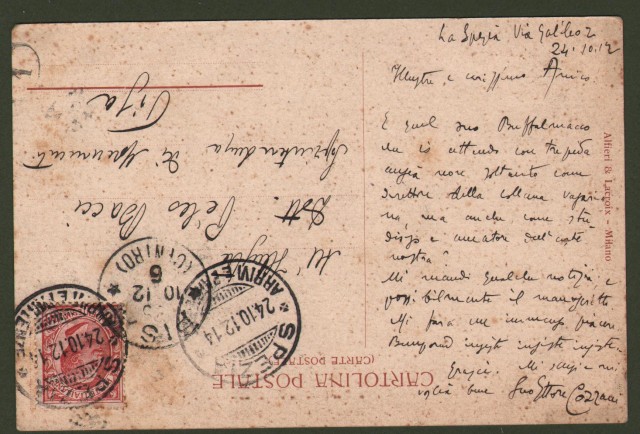 La Spezia Via Galileo 2
24.10.12
Illustre e carissimo Amico
E quel suo Buffalmacco
che io attendo con trepida
ansia non soltanto come
direttore della collana vasaria
na, ma anche come stu
dioso e amatore dell'arte
nostra?
Mi mandi qualche notizia, e
possibilmente il manoscritto
Mi farà un immenso piacere
insisto insisto
Grazie. Mi scriva e mi
voglia bene Suo Ettore Cozzani
Alfieri & Lacroix - Milano
CARTOLINA POSTALE
(CARTE POSTALE)
Dott Peleo Bacci
Sovrintendenza
di Monumenti
Pisa
PISA
(CENTRO)
10 12
6
SPEZIA
ARRIVI E PARTENZE
24.10.12.14
SPEZIA
ARRIVI E PARTENZE
24.10.12.14
1